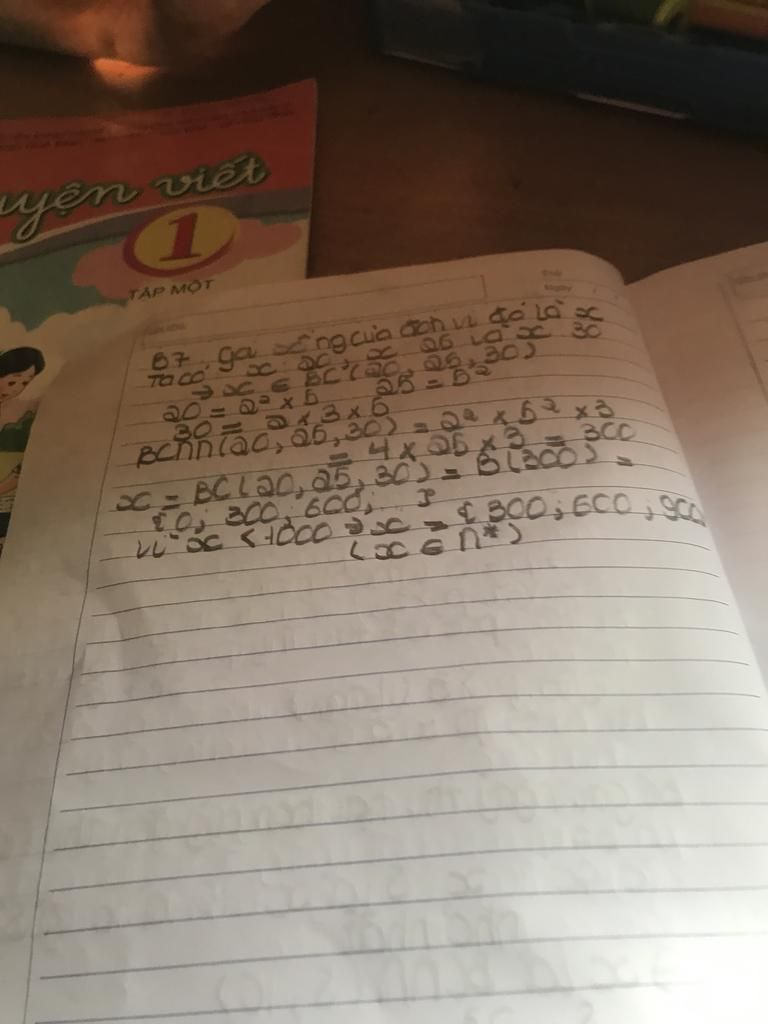 uyện viết
1
TẬP MỘT
Ngày
B7. Gọi số của đơn vị đó là x
Ta có x 20, x 25 và x 30
⇒ x ∈ BC (20, 25, 30)
20 = 2² × 5 25 = 5²
30 = 2 × 3 × 5
BCNN(20, 25, 30) = 2² × 5² × 3
= 4 × 25 × 3 = 300
x = BC(20, 25, 30) = B(300) =
{0; 300; 600; }
Vì x < 1000 ⇒ x = {300; 600; 900
(x ∈ N*)